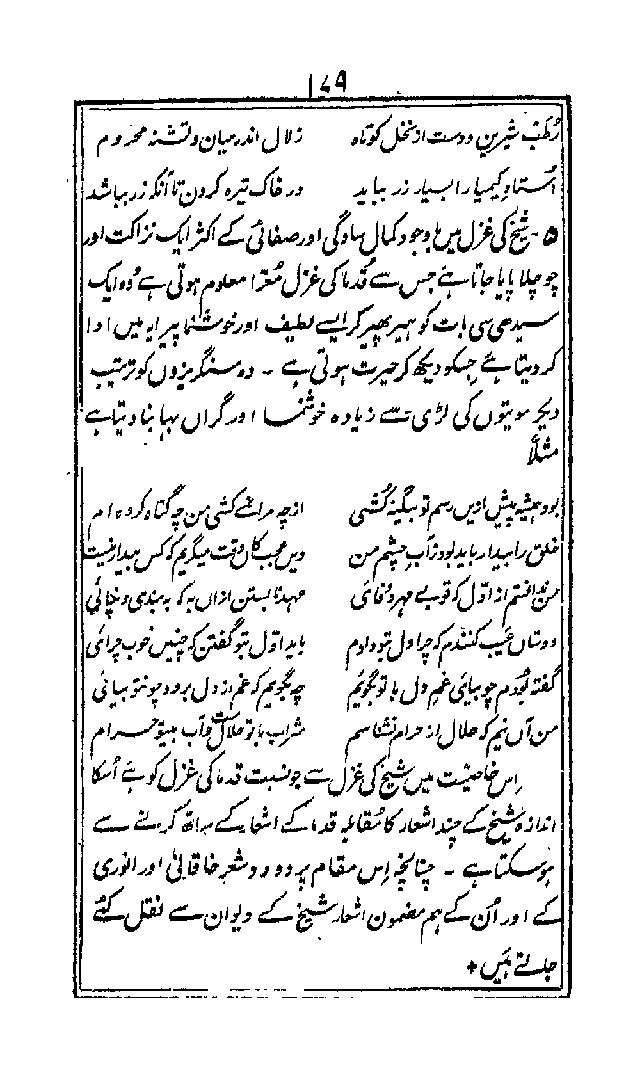 ۱۷۹
رطب شیرین و دست از نخل کوتاه زلال اندر میان و تشنہ محروم
استاد کیمیا را بسیار زر بباید در خاک تیرہ کردن تا آنکہ زر بباشد
۵- شیخ کی غزل میں باوجود کمال سادگی اور صفائی کے اکثر ایک نزاکت اور
چوچلا پایا جاتا ہے جس سے قدما کی غزل معرا معلوم ہوتی ہے وہ ایک
سیدھی سی بات کو ہیر پھیر کر ایسے لطیف اور خوشنما پیرایہ میں ادا
کر دیتا ہے جسکو دیکھ کر حیرت ہوتی ہے - وہ سنگریزوں کو ترتیب
دیکر موتیوں کی لڑی سے زیادہ خوشنما اور گراں بہا بنا دیتا ہے
مثلاً
بود ہمیشہ پیش ازیں رسم تو بیگنہ کُشی ازچہ مرا نمے کشی من چہ گناہ کردہ ام
خلق را بیدار باید بود ز آب چشم من ویں عجب کان وقت میگریم کہ کس بیدار نیست
من ندانستم از اول کہ تو بے مہر و وفائی عہد نابستن ازاں بہ کہ بہ بندی و نپائی
دوستاں عیب کنندم کہ چرا دل بتو دادم باید اول بتو گفتن کہ چنیں خوب چرائی
گفتہ بودم چو بیائی غم دل با تو بگویم چہ بگویم کہ غم از دل برود چوں تو بیائی
من آں نیم کہ حلال از حرام نشناسم شراب با تو حلال ست و آب بیتو حرام
اس خاصیت میں شیخ کی غزل سے جو نسبت قدما کی غزل کو ہے اُسکا
اندازہ شیخ کے چند اشعار کا مقابلہ قدما کے اشعار کے ساتھ کرنے سے
ہو سکتا ہے - چنانچہ اِس مقام پر دو دو شعر خاقانی اور انوری
کے اور اُن کے ہم مضمون اشعار شیخ کے دیوان سے نقل کئے
جاتے ہیں +